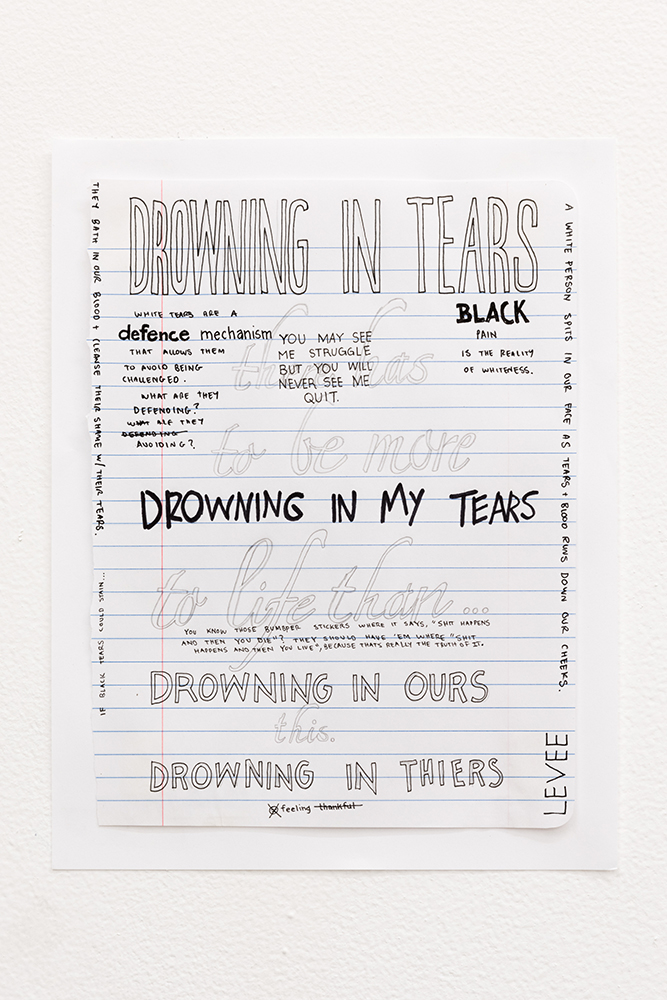 DROWNING IN TEARS
THEY BATH IN OUR BLOOD + CLEANSE THEIR SHAME W/ THEIR TEARS.
IF BLACK TEARS COULD STAIN...
WHITE TEARS ARE A
defence mechanism
THAT ALLOWS THEM
TO AVOID BEING
CHALLENGED.
WHAT ARE THEY
DEFENDING?
WHAT ARE THEY
DEFENDING
AVOIDING?
YOU MAY SEE
ME STRUGGLE
BUT YOU WILL
NEVER SEE ME
QUIT.
BLACK
PAIN
IS THE REALITY
OF WHITENESS.
A WHITE PERSON SPITS IN OUR FACE AS TEARS + BLOOD RUNS DOWN OUR CHEEKS.
there has
to be more
DROWNING IN MY TEARS
to life than...
YOU KNOW THOSE BUMBPER STICKERS WHERE IT SAYS, "SHIT HAPPENS
AND THEN YOU DIE"? THEY SHOULD HAVE 'EM WHERE "SHIT
HAPPENS AND THEN YOU LIVE", BECAUSE THATS REALLY THE TRUTH OF IT.
DROWNING IN OURS
this.
DROWNING IN THIERS
feeling thankful
LEVEE